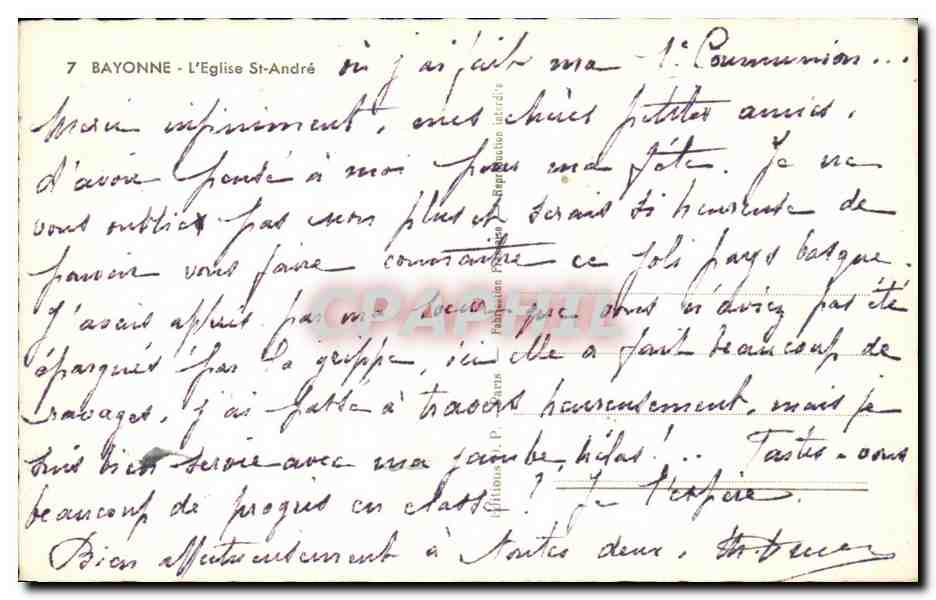 7 BAYONNE - L'Eglise St-André où j'ai fait ma 1e Communion...
Merci infiniment, mes chères petites amies,
d'avoir pensé à moi pour ma fête. Je ne
vous oublie pas non plus et serais si heureuse de
pouvoir vous faire connaître ce joli pays basque.
J'avais appris par ma soeur que vous n'aviez pas été
épargnés par la grippe, ici elle a fait beaucoup de
ravages, j'ai passé à travers heureusement, mais je
suis bien servie avec ma jambe, hélas!.. Faites-vous
beaucoup de progrès en classe? Je l'espère.
Bien affectueusement à toutes deux.
Editions P. Paris - Fabrication Française - Reproduction interdite
CPAPHIL